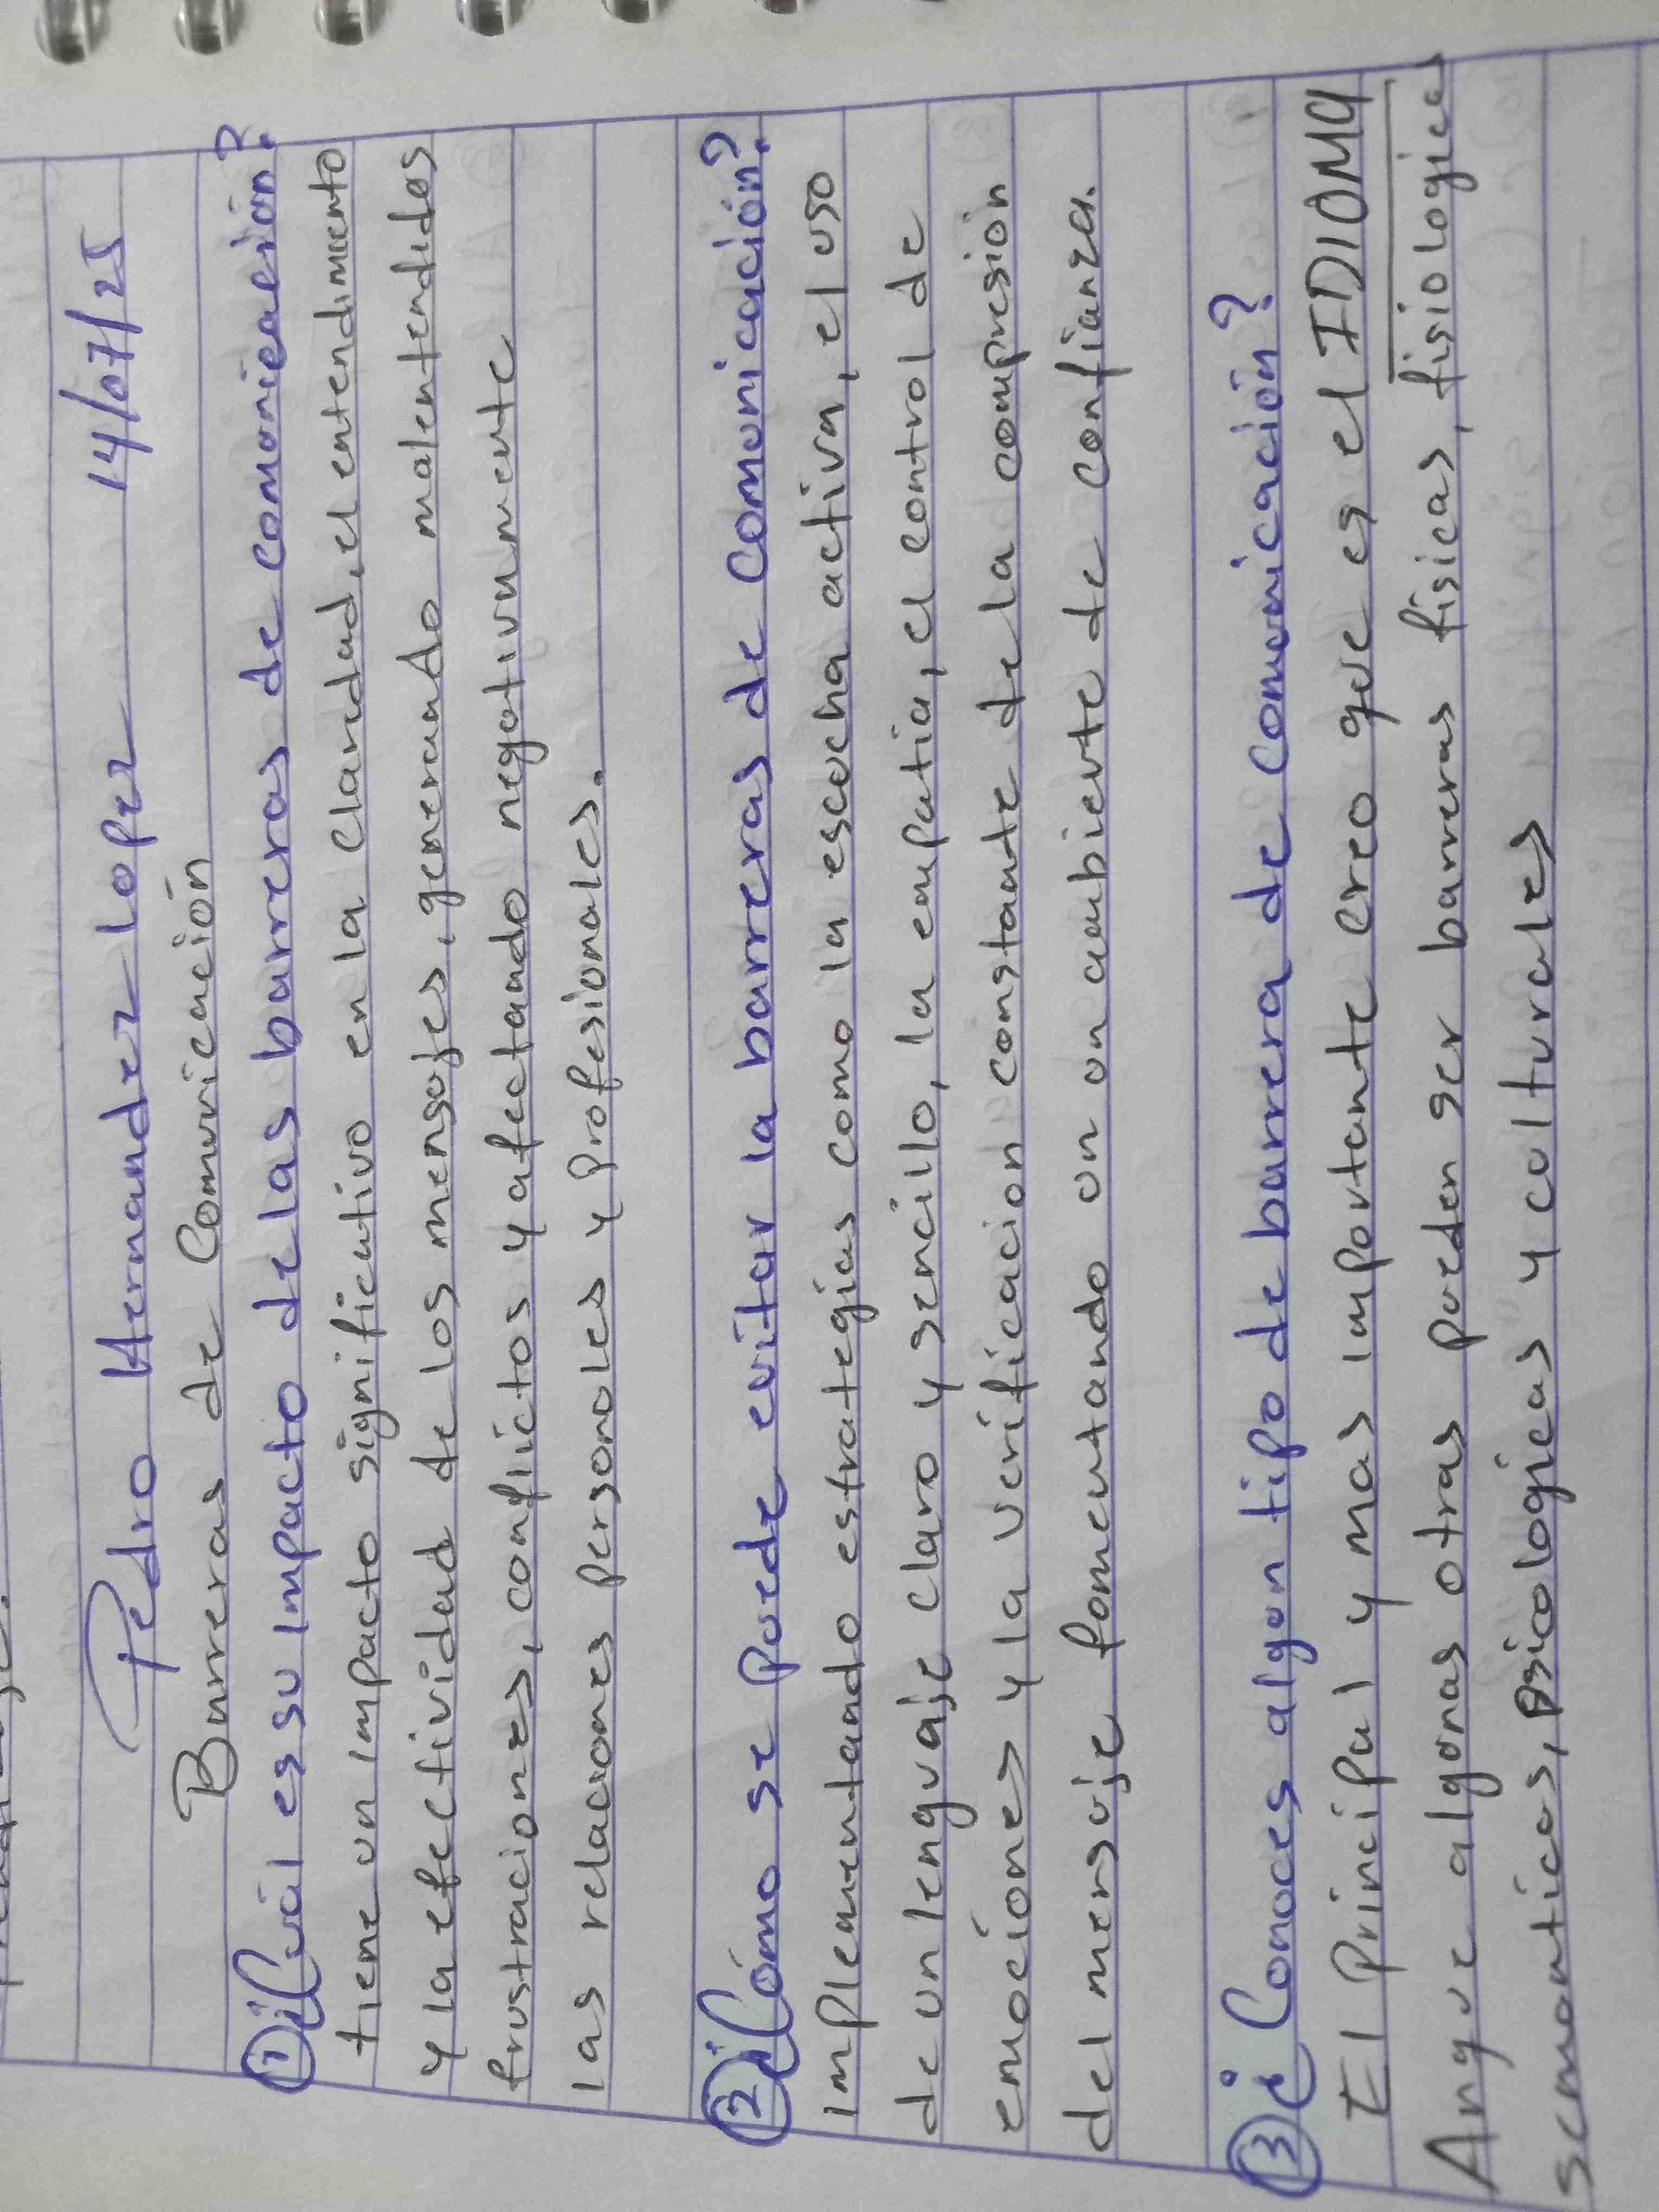 Pedro Hernandez Lopez 14/07/25
Barreras de Comunicación
① ¿Cuál es su impacto de las barreras de comunicación?
tiene un impacto significativo en la claridad, el entendimiento
y la efectividad de los mensajes, generando malentendidos
frustraciones, conflictos y afectando negativamente
las relaciones personales y profesionales.
② ¿Cómo se puede evitar la barreras de comunicación?
Implementando estrategias como la escucha activa, el uso
de un lenguaje claro y sencillo, la empatia, el control de
emociones y la verificacion constante de la compresion
del mensaje fomentando un ambiente de confianza.
③ ¿Conoces algun tipo de barrera de comunicación?
El Principal y mas importante creo que es el IDIOMA
Anque algunas otras pueden ser barreras físicas, fisiologicas
semanticas, psicologicas y culturales